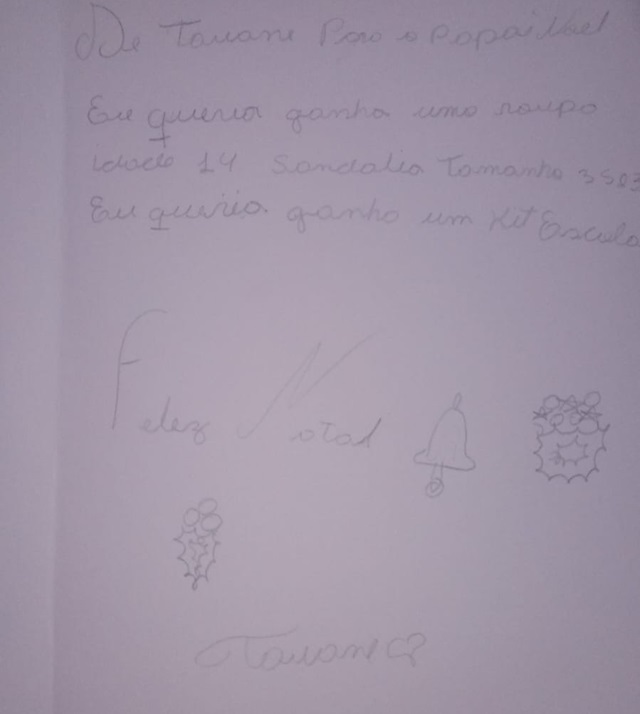 De Tauane Para o Papai Noel
Eu queria ganha uma roupa
idade 14 Sandalia Tamanho
Eu queria ganha um Kit Escola
Feliz Natal
Tauane